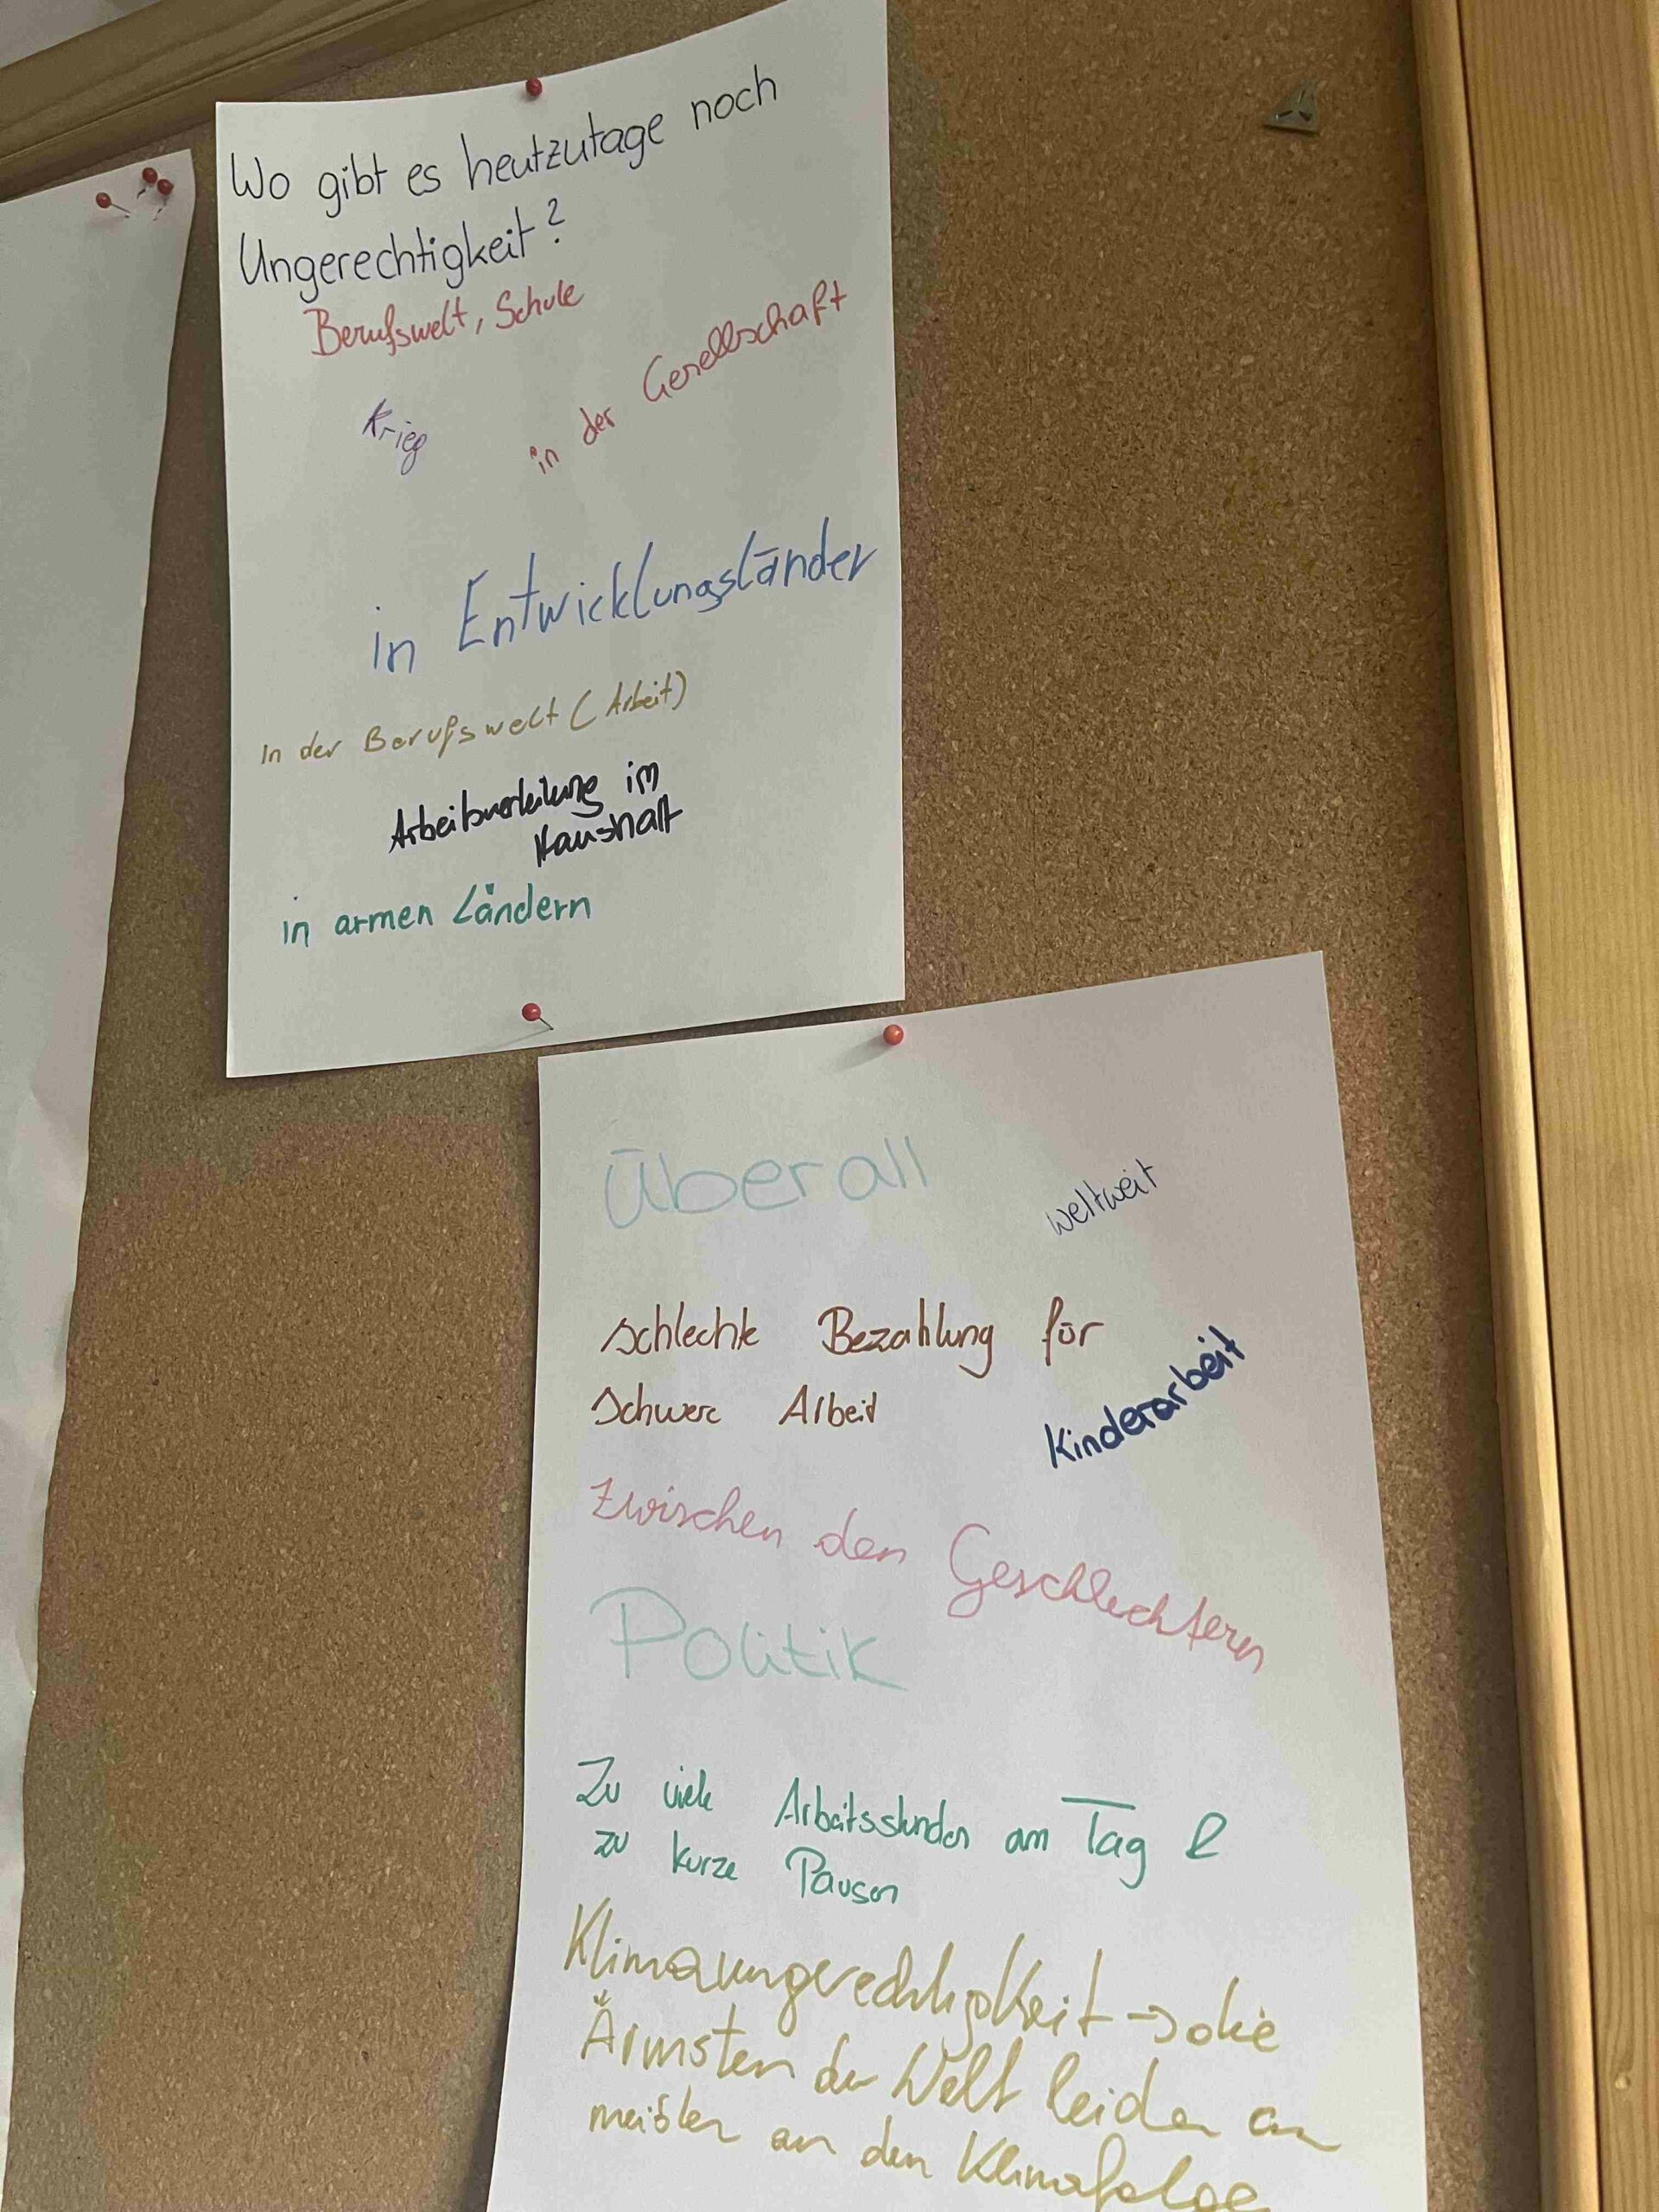 Wo gibt es heutzutage noch
Ungerechtigkeit?
Berufswelt, Schule
Krieg
in der Gesellschaft
in Entwicklungsländer
In der Berufswelt (Arbeit)
Arbeitsverteilung im
Haushalt
in armen Ländern
überall
weltweit
schlechte Bezahlung für
schwere Arbeit
Kinderarbeit
Zwischen den Geschlechtern
Politik
Zu viele Arbeitsstunden am Tag &
zu kurze Pausen
Klimaungerechtigkeit → die
Ärmsten der Welt leiden am
meisten an den Klimafolge